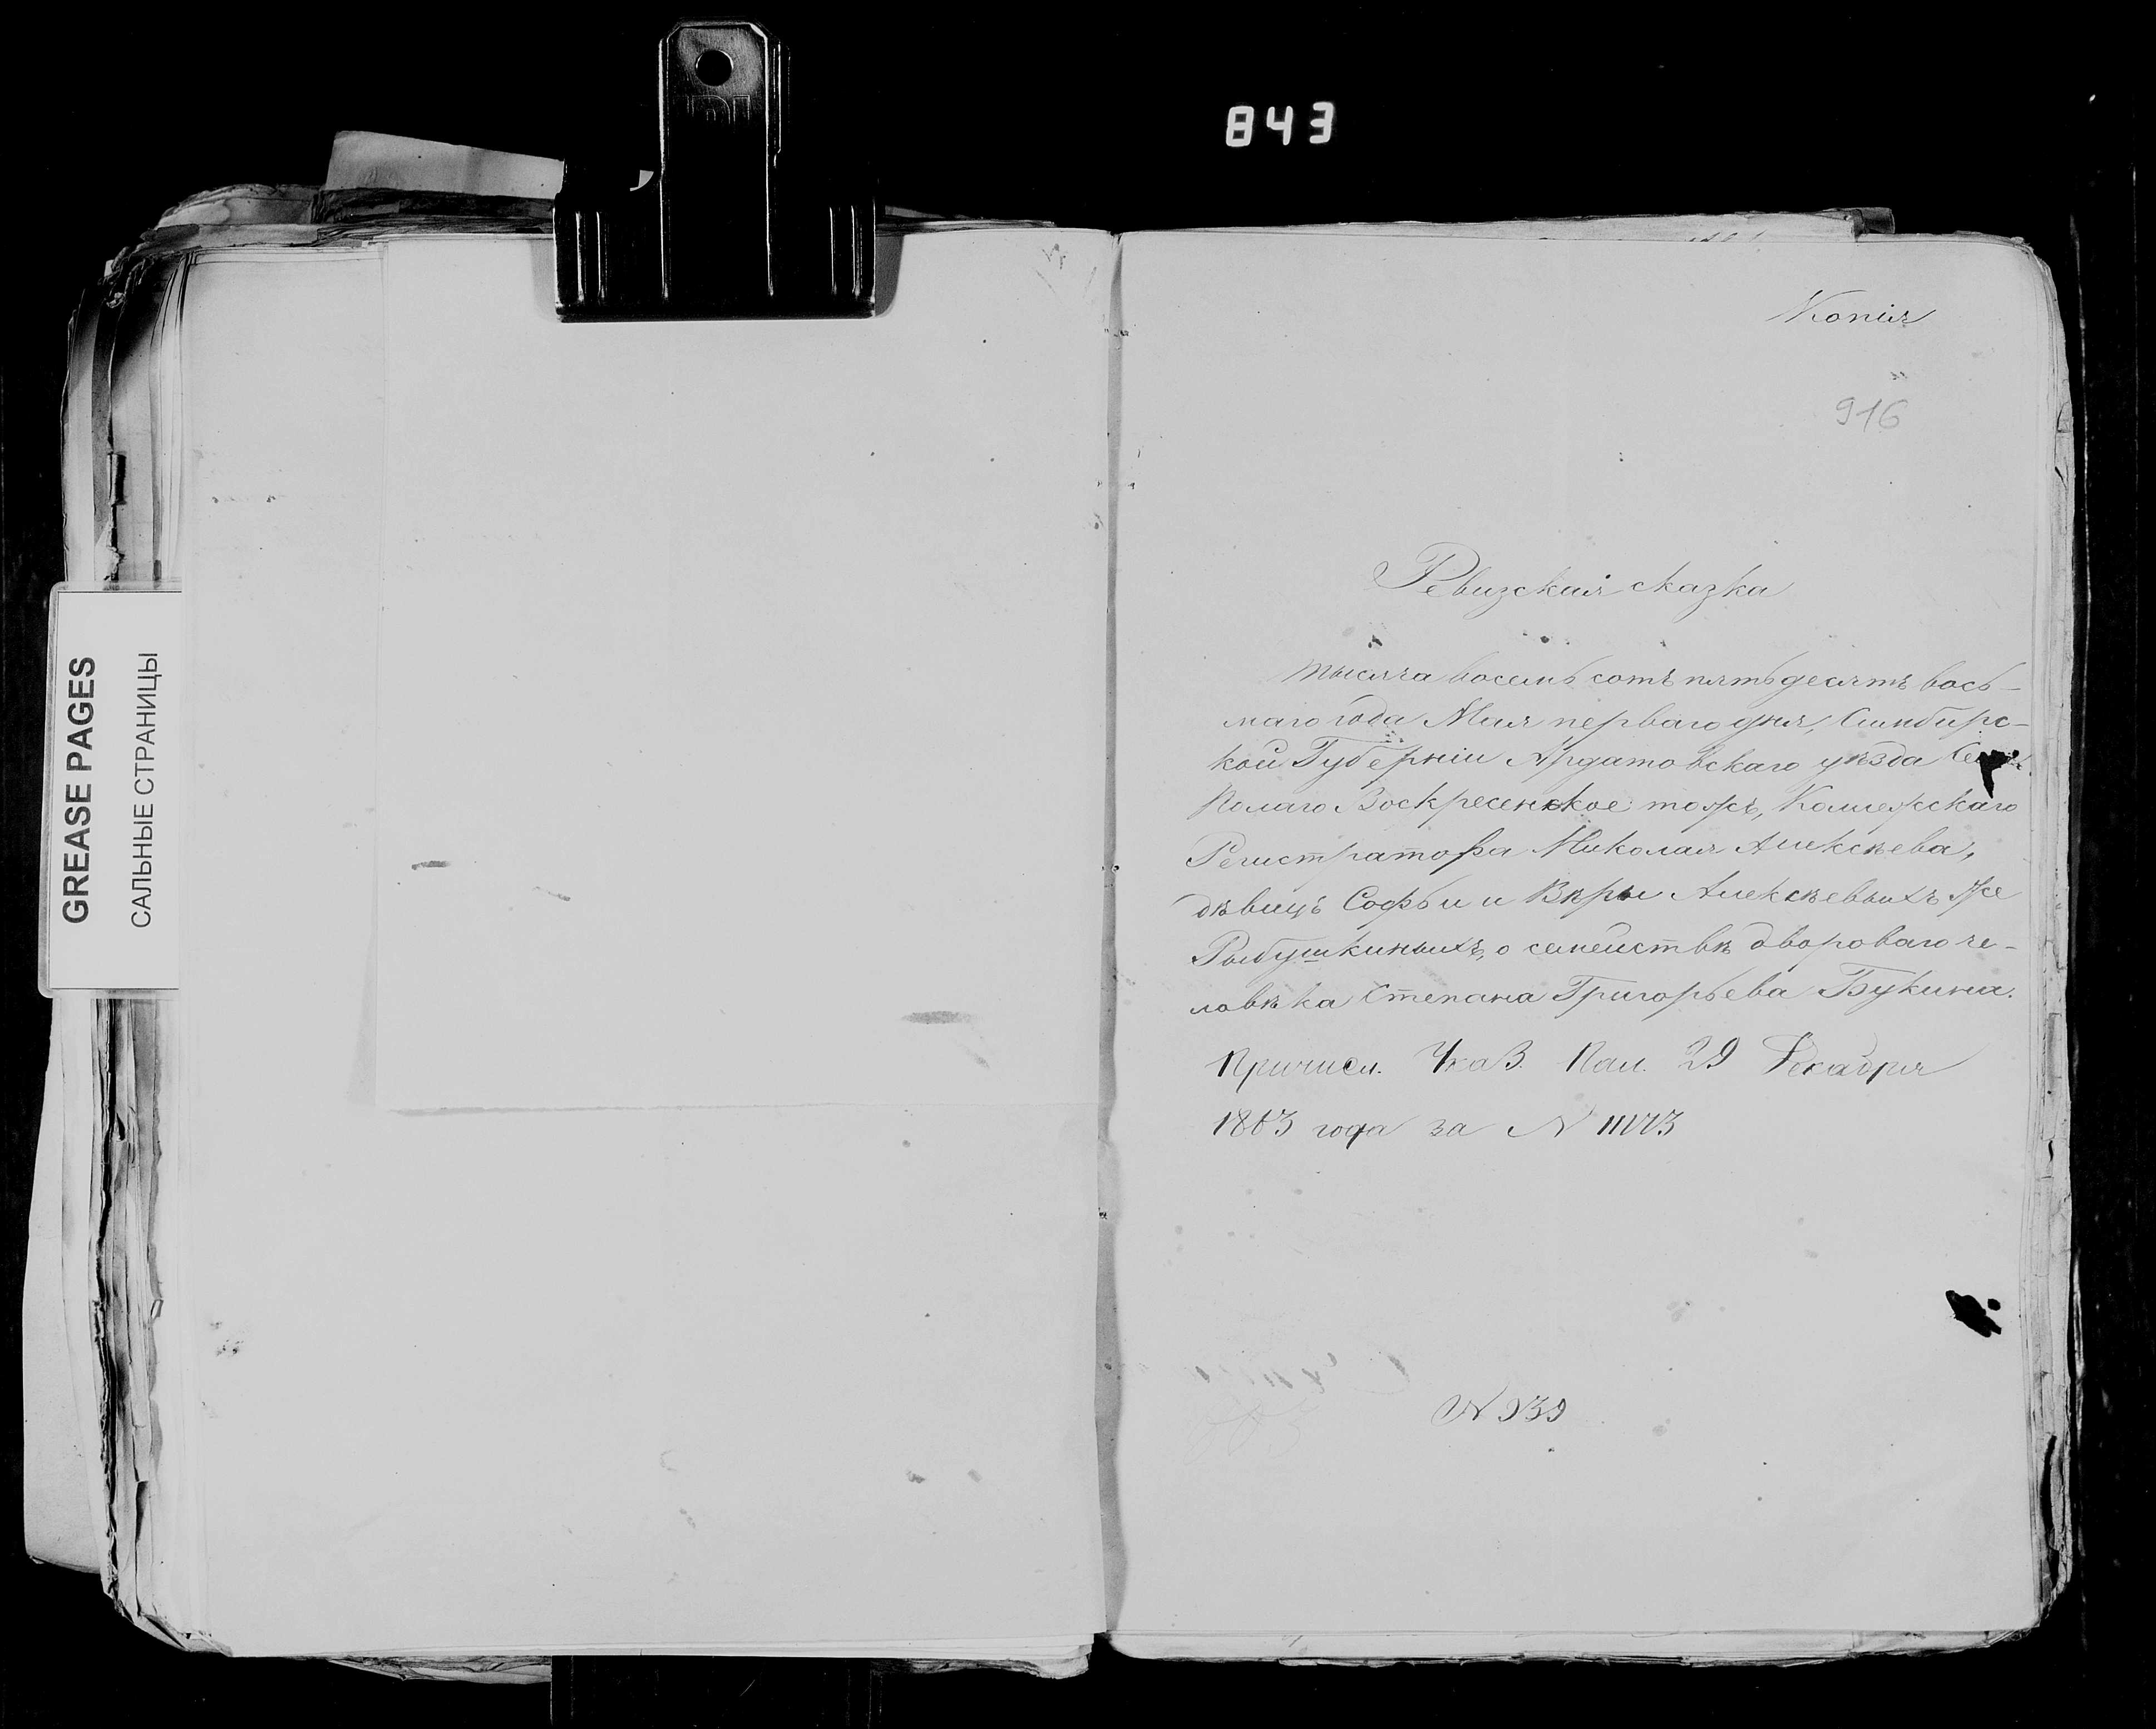 843
GREASE PAGES
САЛЬНЫЕ СТРАНИЦЫ
Копія
916
Ревизская сказка
тысяча восемь сотъ пятьдесятъ вось-
маго года Мая перваго дня, Симбирс-
кой Губерніи Ардатовскаго уѣзда
Полаго Воскресенское тожъ, Коллежскаго
Регистратора Николая Алексѣева,
дѣвицъ Софьи и Вѣры Алексѣевыхъ же
Рыбушкиныхъ, о семействѣ двороваго че-
ловѣка Степана Григорьева Букина.
Причисл. Указ. Пал. 29 Декабря
1863 года за N
N 939